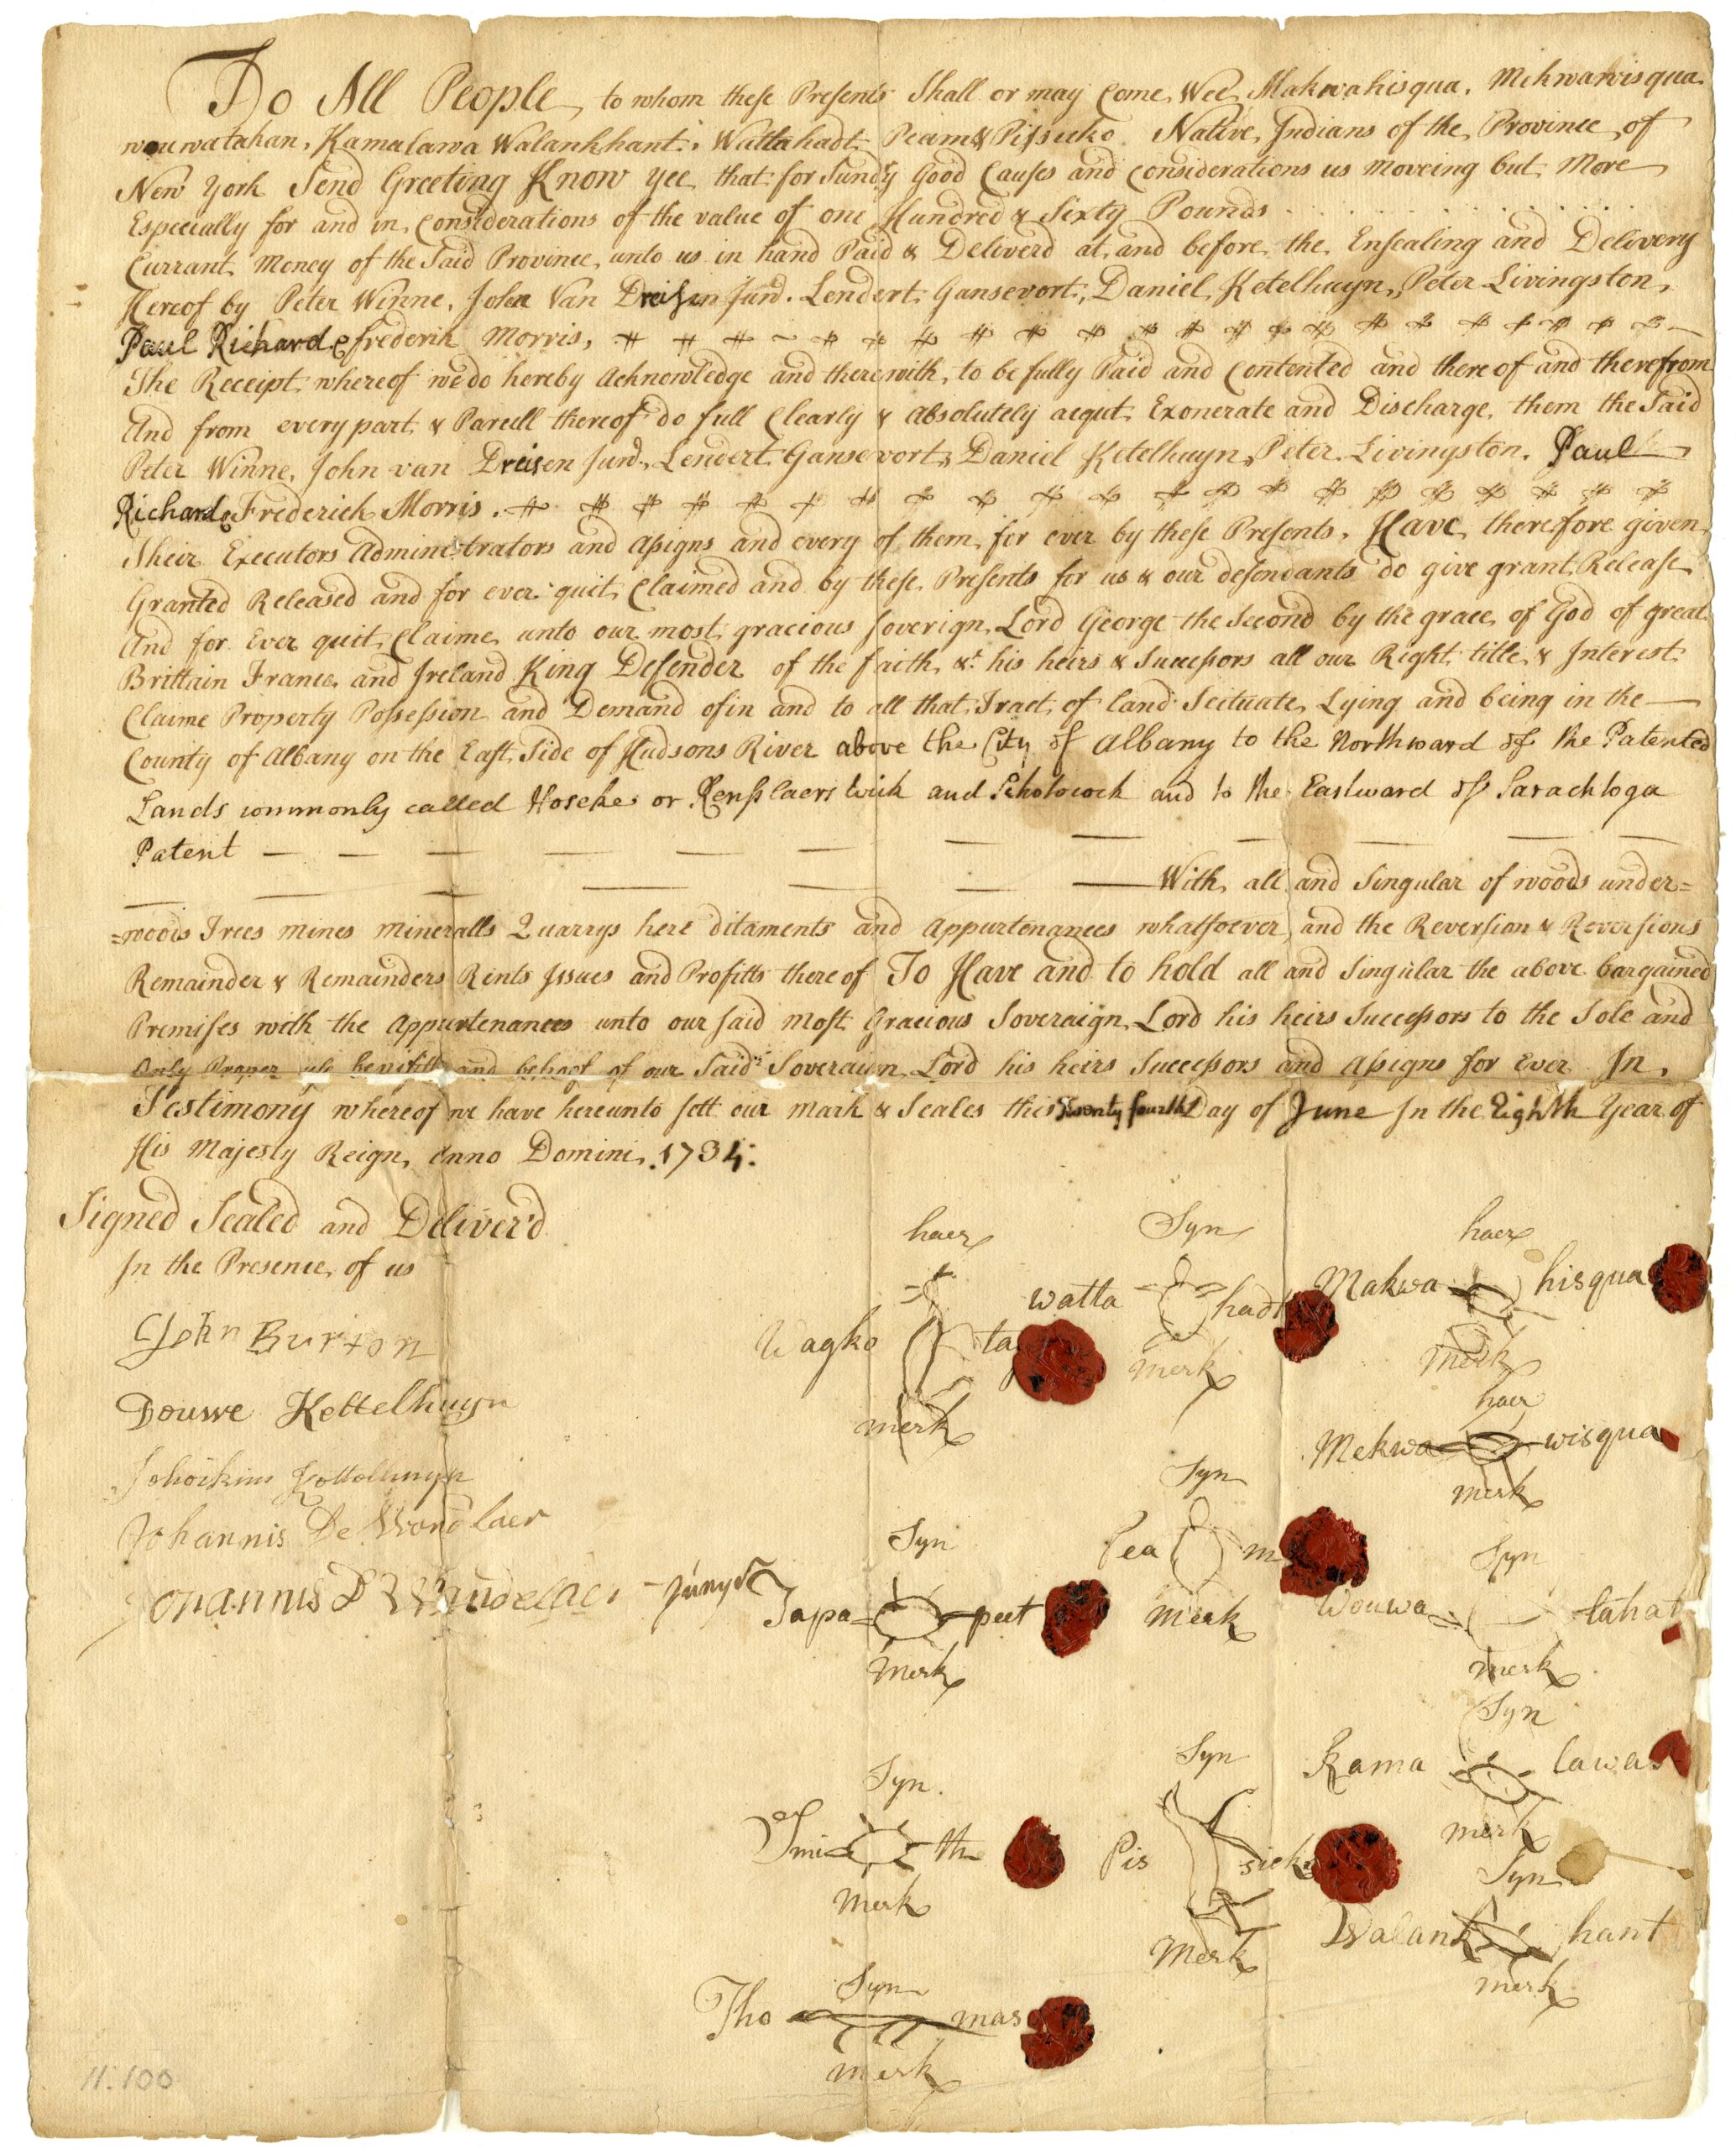 To All People to whom these Presents Shall or may Come, Wee, Makwahisqua, Mekwawisqua
wouwatahan, Kamalawa Walankhant, Wattahadt, Peam & Pissieko Native, Indians of the Province of
New York Send Greeting Know yee that for Sundry Good Causes and Considerations us Moveing but More
Especially for and in Considerations of the value of one Hundred & Sixty Pounds
Currant Money of the Said Province, unto us in hand Paid & Deliverd at and before the Ensealing and Delivery
Hereof by Peter Winne, John Van Dreisen Junr. Lendert Gansevort, Daniel Ketelhuyn, Peter Livingston,
Paul Richard & frederik Morris,
The Receipt whereof we do hereby Acknowledge and therewith to be fully Paid and Contented and there of and therefrom
And from every part & Parcell thereof do full Clearly & Absolutely acqut Exonerate and Discharge them the Said
Peter Winne, John van Dreisen Junr. Lendert Gansevort, Daniel Ketelhuyn, Peter Livingston, Paul
Richard & Frederick Morris.
Their Executors Administrators and Assigns and every of them for ever by these Presents, Have therefore given
Granted Released and for ever quit Claimed and by these Presents for us & our desendants do give grant Release
And for Ever quit Claime unto our most gracious soverign Lord George the Second by the grace of God of great
Brittain France and Ireland King Defender of the faith &c his heirs & Successors all our Right title & Interest
Claime Property Possession and Demand of in and to all that Tract of land Scituate Lying and being in the
County of Albany on the East Side of Hudsons River above the City of Albany to the Northward of the Patented
Lands commonly called Hoseke or Renslaers wick and Schotocock and to the Eastward of Sarachtoga
Patent
With all and Singular of woods under=
=woods Trees mines Mineralls Quarrys here ditaments and Appurtenances whatsoever and the Reversion & Reversions
Remainder & Remainders Rints Issues and Profitts there of To Have and to hold all and Singular the above bargained
Premises with the Appurtenances unto our said Most Gracious Soveraign Lord his heirs Successors to the Sole and
Only Proper use benifitt and behoof of our Said Soveraign Lord his heirs Successors and Assigns for Ever In
Testimony whereof we have hereunto sett our mark & Seales this Twenty fourth Day of June In the Eighth Year of
His Majesty Reign, Anno Domini, 1734:
Signed Sealed and Deliver'd
In the Presence of us
John Burton
Douwe Kettelhuyn
Johannis De Wandelaer
Junyor
haer
Wagko
merk
Syn
Watta hadt
merk
haer
Makwa hisqua
merk
haer
Mekwa wisqua
merk
Syn
Japa peet
merk
Syn
Pea m
merk
Syn
Wouwa tahat
merk
Syn
Kama lawas
merk
Syn
Smi th
merk
Syn
Pis sieko
merk
Syn
Walank hant
merk
Syn
Tho mas
merk
11.100